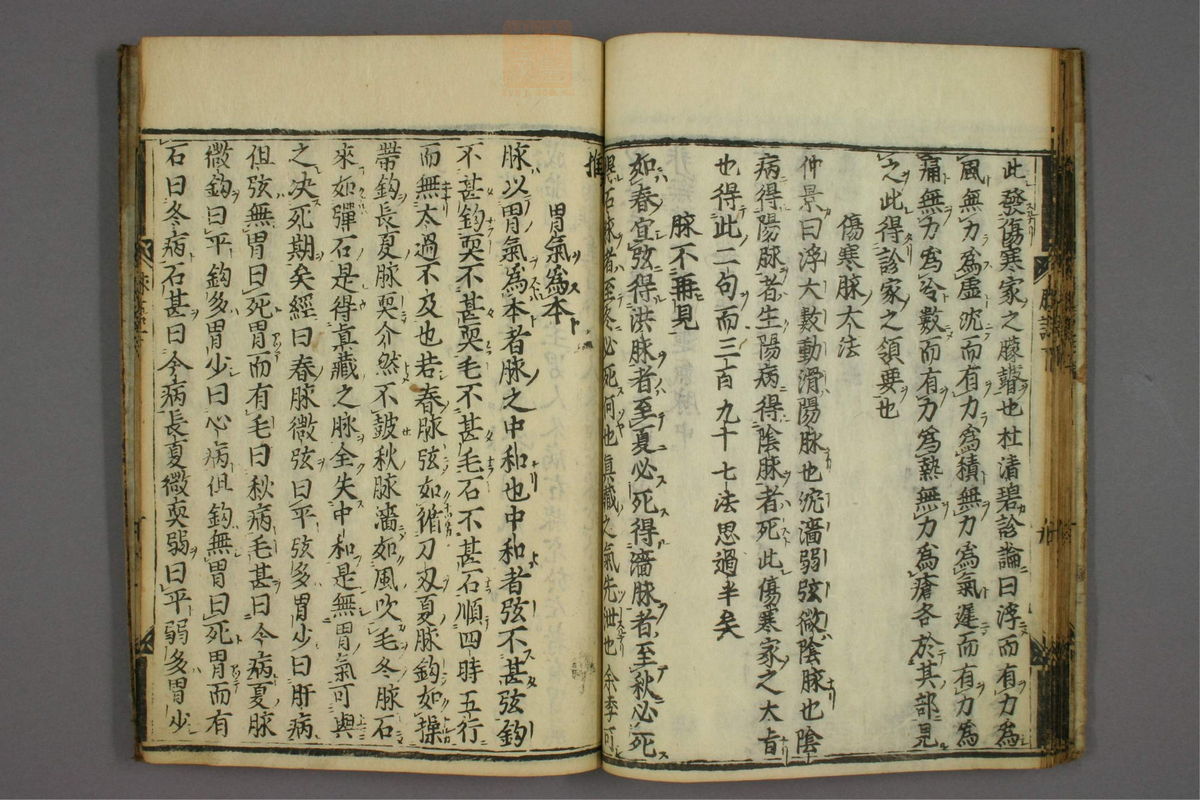 此發傷寒家之朦瞽也杜清碧診論曰浮而有力為
風無力為虛沉而有力為積無力為氣遲而有力為
痛無力為冷數而有力為熱無力為瘡各於其部見
之此得診家之領要也
傷寒脉大法
仲景曰浮大數動滑陽脉也沉濇弱弦微陰脉也陰
病得陽脉者生陽病得陰脉者死此傷寒家之大旨
也得此二句而三百九十七法思過半矣
脉不再見
如春宜弦得洪脉者至夏必死得濇脉者至秋必死
得石脉者至冬必死何也真藏之氣先泄也余李可
推
胃氣為本
脉以胃氣為本者脉之中和也中和者弦不甚弦鈎
不甚鈎耎不甚耎毛不甚毛石不甚石順四時五行
而無太過不及也若春脉弦如循刀刄夏脉鈎如操
帶鈎長夏脉耎介然不鼓秋脉濇如風吹毛冬脉石
來如彈石是得真藏之脉全失中和是無胃氣可與
之决死期矣經曰春脉微弦曰平弦多胃少曰肝病
但弦無胃曰死胃而有毛曰秋病毛甚曰今病夏脉
微鈎曰平鈎多胃少曰心病但鈎無胃曰死胃而有
石曰冬病石甚曰今病長夏微耎弱曰平弱多胃少